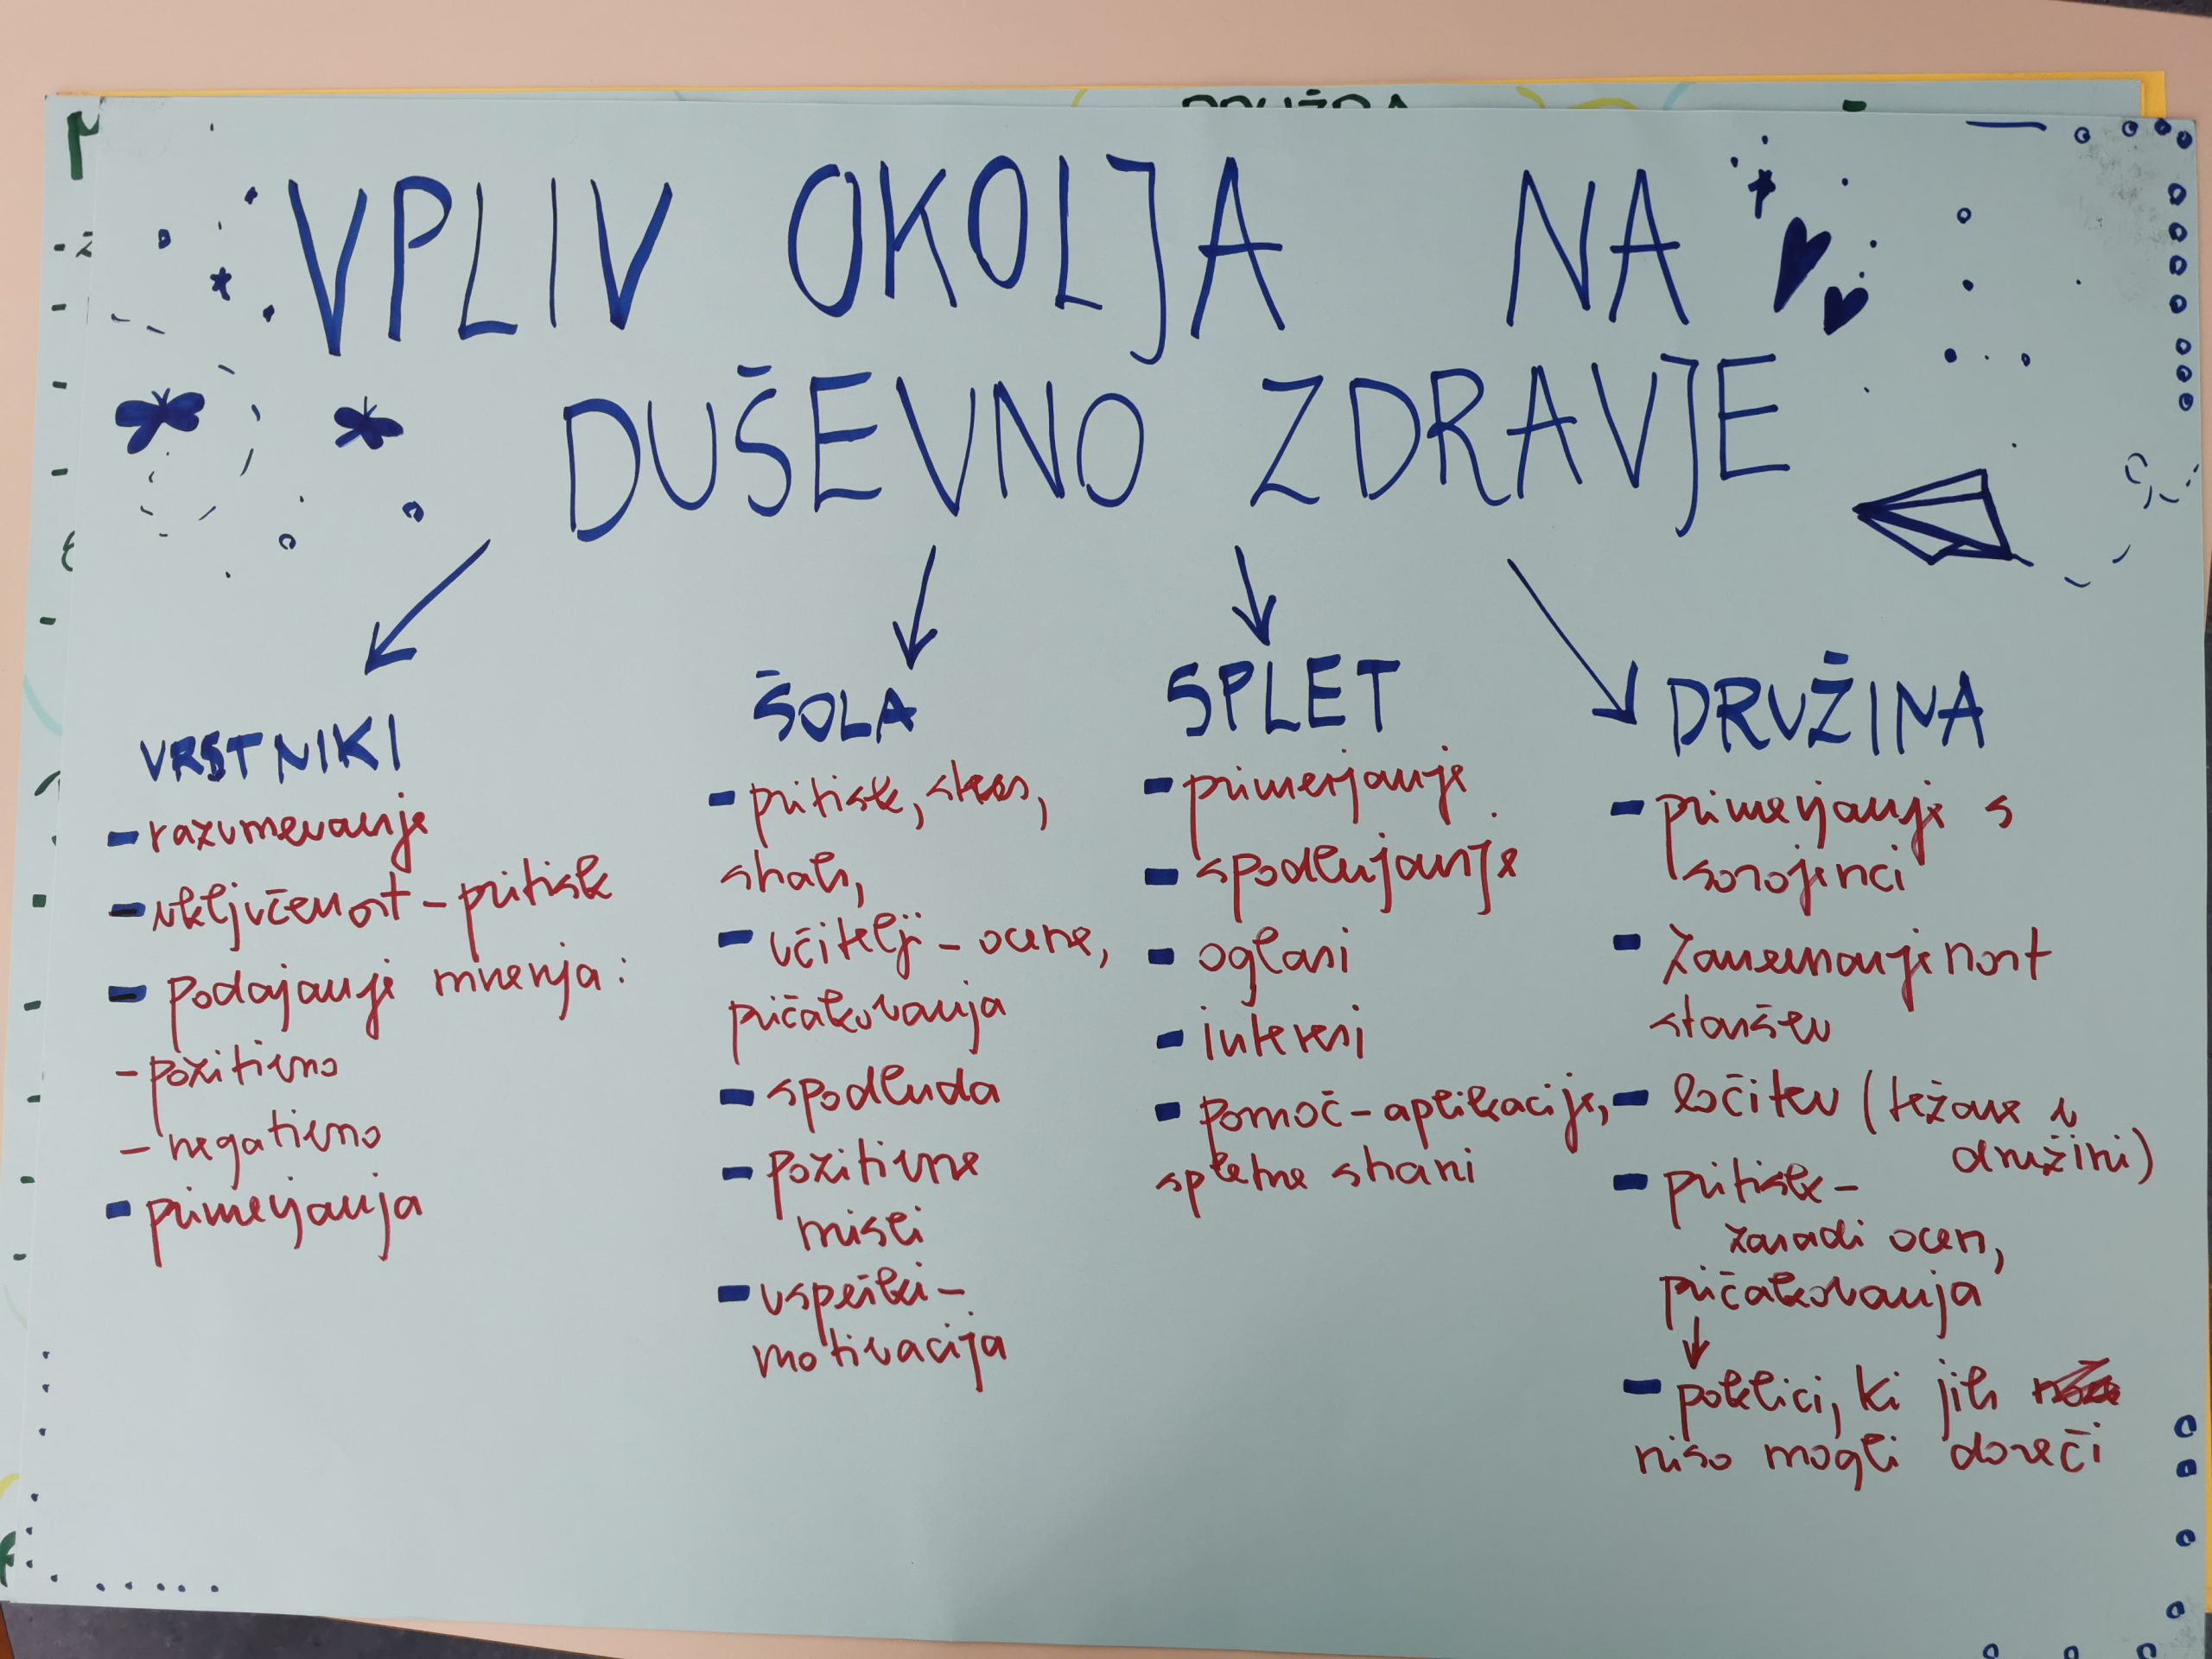 VPLIV OKOLJA NA
DUŠEVNO ZDRAVJE
VRSTNIKI
- razumevanje
- vključenost - pritisk
- podajanje mnenja:
- pozitivno
- negativno
- primerjanja
ŠOLA
- pritisk, stres,
strah,
- učitelji - ocene,
pričakovanja
- spodbuda
- pozitivne
misli
- uspehi -
motivacija
SPLET
- primerjanje
- spodbujanje
- oglasi
- interesi
- pomoč - aplikacije,
spletne strani
DRUŽINA
- primerjanje s
sorojenci
- Zanemarjenost
staršev
- ločitev (težave v
družini)
- pritisk -
zaradi ocen,
pričakovanja
↓
- poklici, ki jih
niso mogli doseči